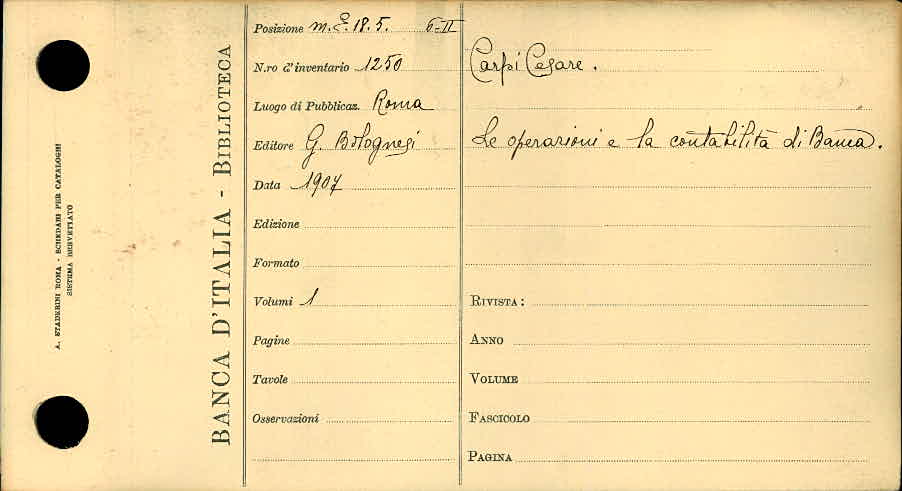 A. STADERINI ROMA - SCHEDARI PER CATALOGHI
SISTEMA BREVETTATO
BANCA D'ITALIA - BIBLIOTECA
Posizione m. 18.5. 6-II
N.ro d'inventario 1250
Luogo di Pubblicaz. Roma
Editore G. Bolognesi
Data 1907
Edizione
Formato
Volumi 1
Pagine
Tavole
Osservazioni
Carpi Cesare.
Le operazioni e la contabilità di Banca.
RIVISTA:
ANNO
VOLUME
FASCICOLO
PAGINA